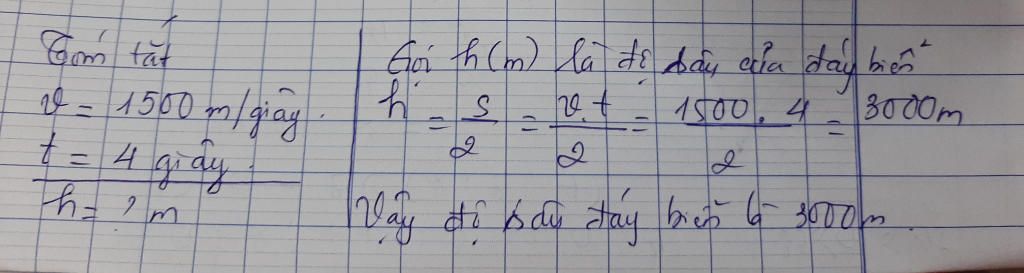 Tóm tắt
v = 1500 m/giây.
t = 4 giây.
h = ? m
Gọi h(m) là độ sâu của đáy biển
h = s/2 = v.t/2 = 1500.4/2 = 3000m
Vậy độ sâu đáy biển là 3000m.